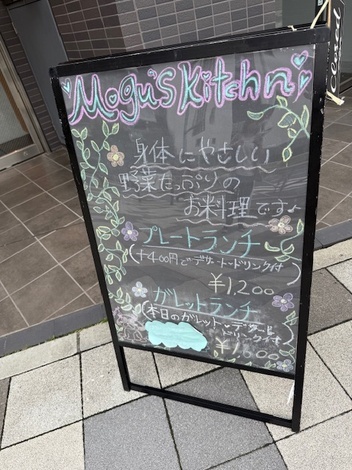 Mogu's Kitchn
身体にやさしい
野菜たっぷりの
お料理です♪
プレートランチ
(+400円でデザート・ドリンク付
¥1,200
ガレットランチ
(本日のガレット、デザート
ドリンク付
¥1,600
closed